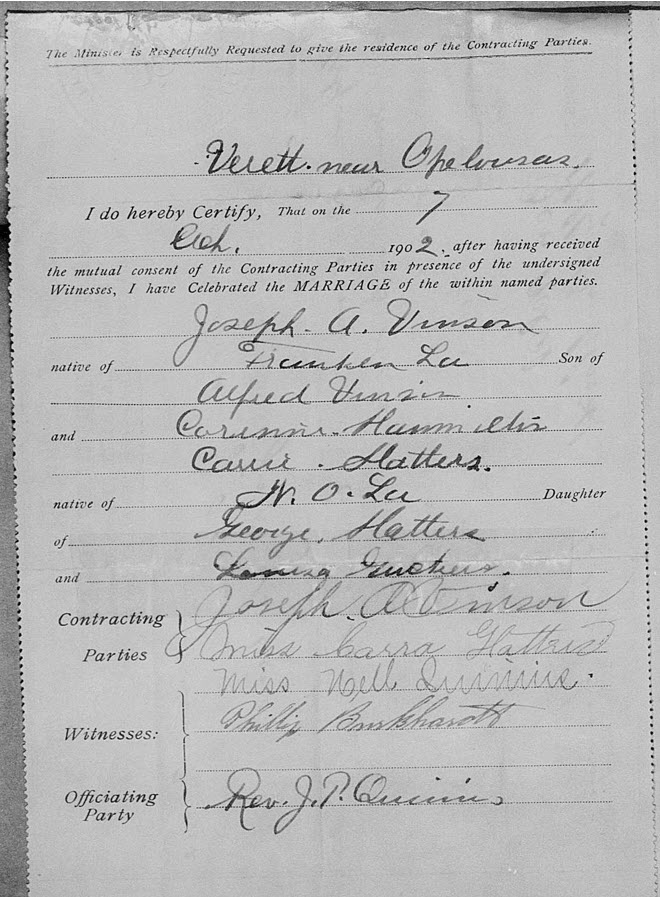 The Minister is Respectfully Requested to give the residence of the Contracting Parties.
Verett. near Opelousas.
I do hereby Certify, That on the 7
Och. 1902, after having received
the mutual consent of the Contracting Parties in presence of the undersigned
Witnesses, I have Celebrated the MARRIAGE of the within named parties.
Joseph. A. Vinson
native of Franken La Son of
Alfred Vinson
and Corinne. Hammilton
Carrie. Hatters.
native of N. O. La Daughter
of George. Hatters
and Louisa
Contracting Joseph. A Vinson
Parties Miss Carra Hatters
Miss Nell Quinius.
Witnesses: Phillip Burkhardt
Officiating Rev. J. P. Quinius
Party